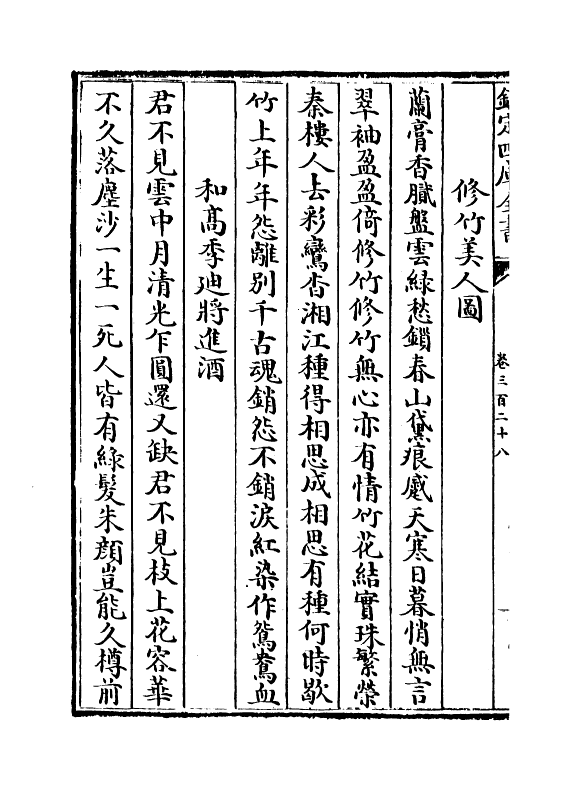 欽定四庫全書
卷三百二十八
修竹美人圖
蘭膏香膩盤雲綠愁鎖春山黛痕蹙天寒日暮悄無言
翠袖盈盈倚修竹修竹無心亦有情竹花結實珠繁榮
秦樓人去彩鸞杳湘江種得相思成相思有種何時歇
竹上年年怨離別千古魂銷怨不銷淚紅染作鴛鴦血
和高季迪將進酒
君不見雲中月清光乍圓還又缺君不見枝上花容華
不久落塵沙一生一死人皆有綠髮朱顏豈能久樽前